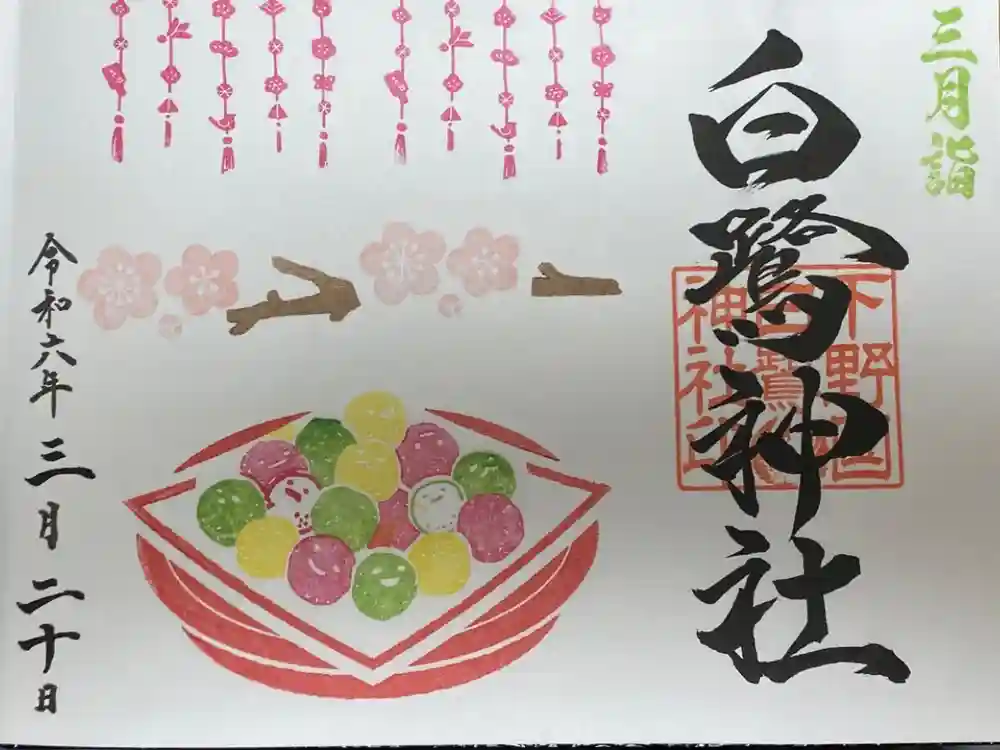 三月詣
白鷺神社
下野国
白鷺
神社印
令和六年三月二十日